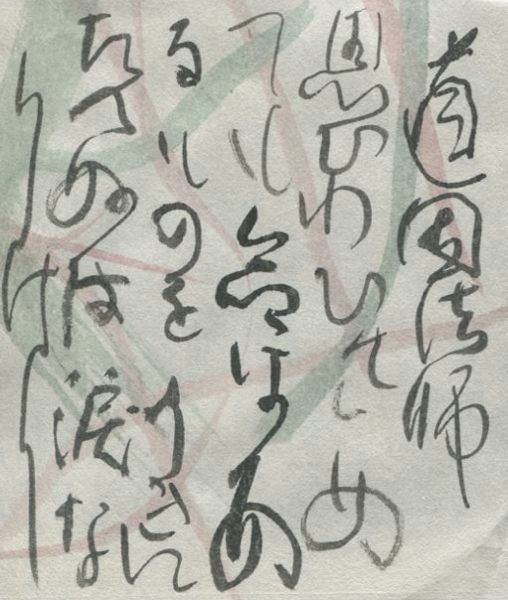 道因法師
思ひわひさ
ても命はあ
るものをうきに
たへぬは涙な
りけり